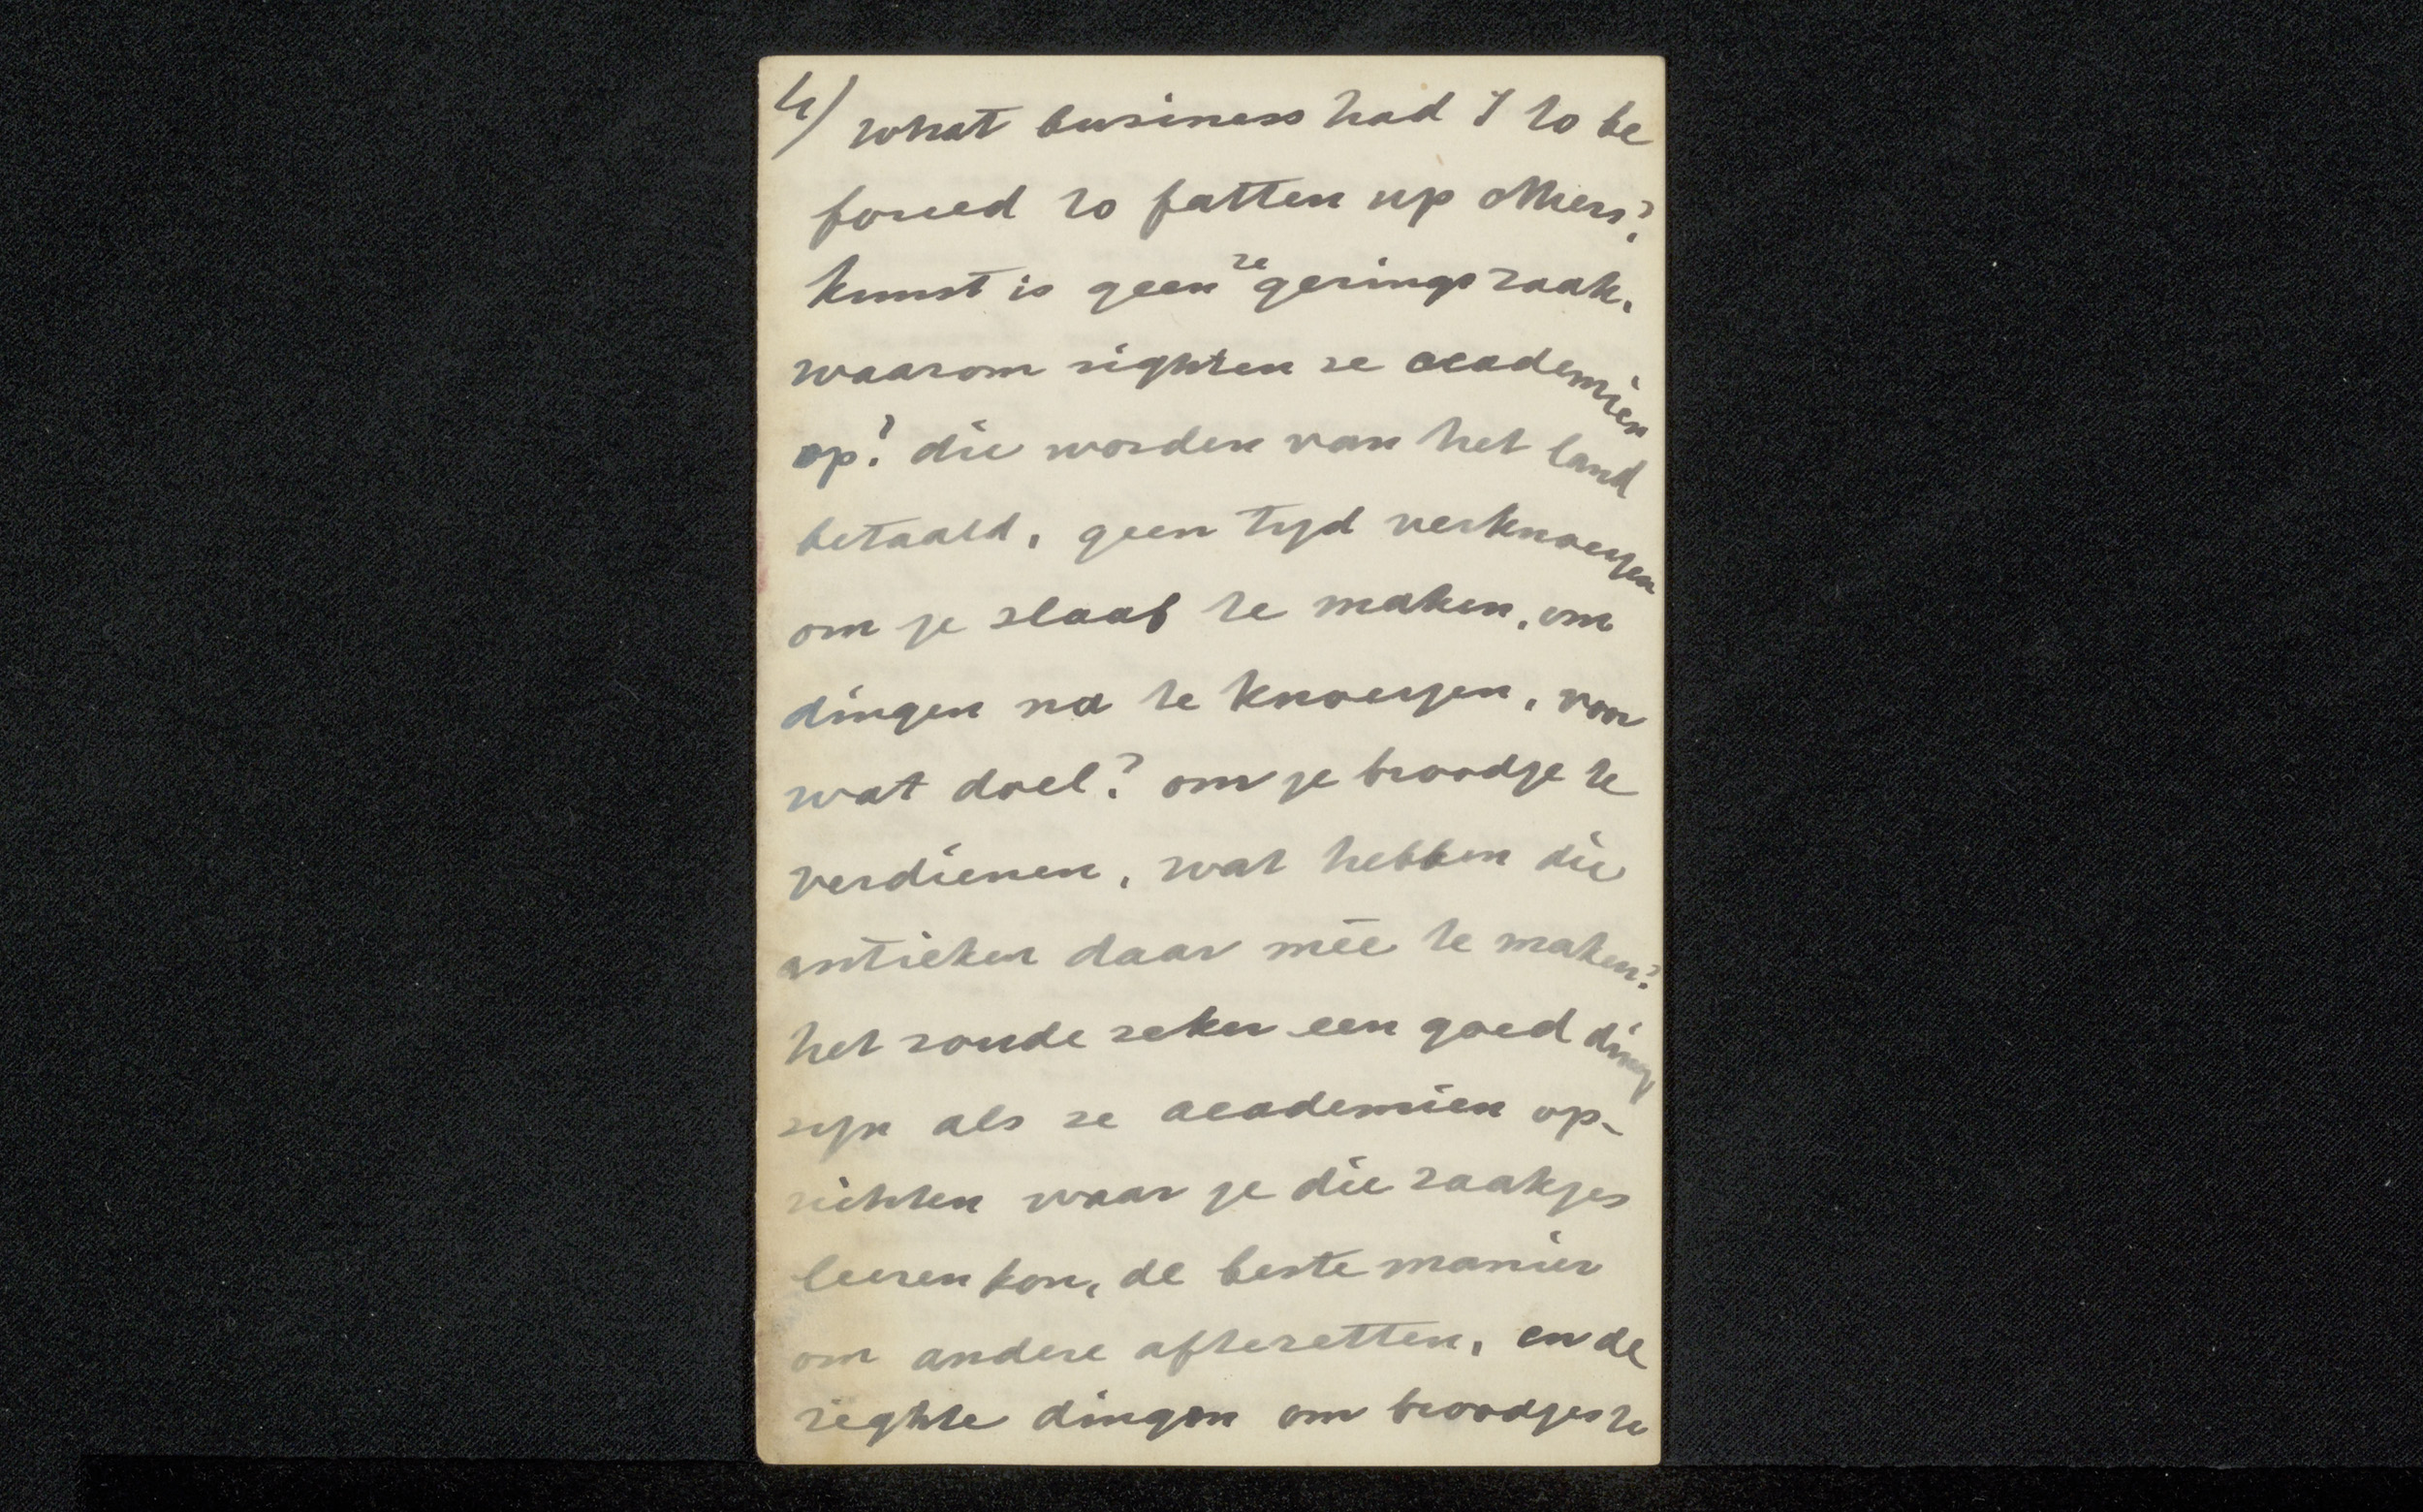 4) what business had I to be
forced to fatten up others?
kunst is geen ze geringe zaak.
waarom righten ze academien
op? die worden van het land
betaald, geen tyd verknoeyen
om je slaaf te maken, om
dingen na te knoeyen, voor
wat doel? om je broodje te
verdienen, wat hebben die
antieken daar mēe te maken?
het zoude zeker een goed ding
zyn als ze academien op-
richten waar je die zaakjes
leeren kon, de beste manier
om andere aftezetten, en de
reghte dingen om broodjes te